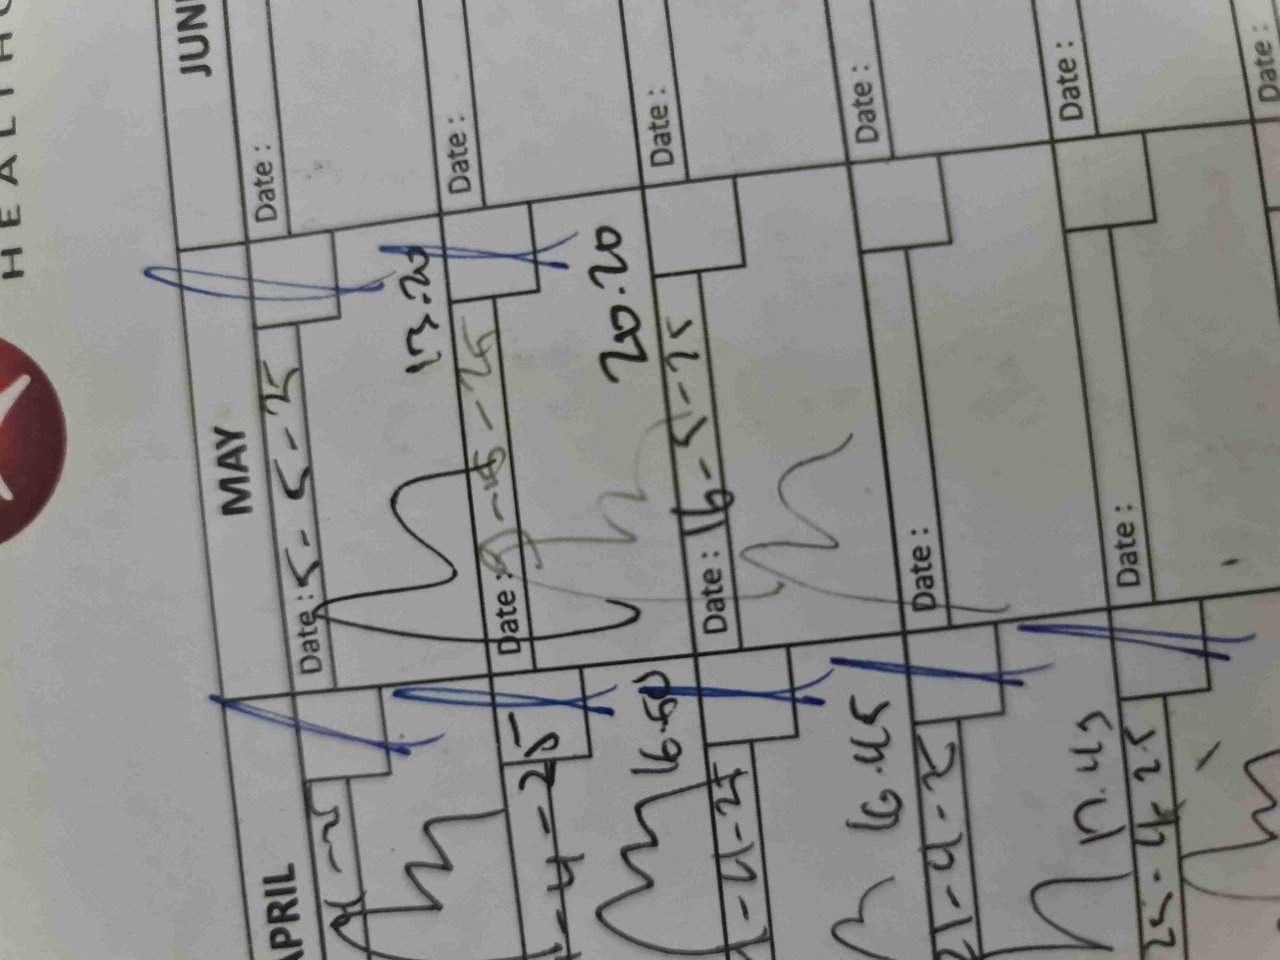 HEALTH
APRIL
-4-25
16.50
-4-25
16.45
21-4-25
17.45
25-4-25
MAY
Date: 5-5-25
17.20
Date: 9-5-25
20.20
Date: 16-5-25
Date:
Date:
JUN
Date:
Date:
Date:
Date:
Date:
Date: